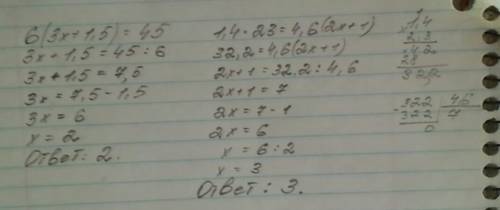 6(3x+1,5)=45
3x+1,5=45:6
3x+1,5=7,5
3x=7,5-1,5
3x=6
x=2
Ответ: 2.
1,4·23=4,6(2x+1)
32,2=4,6(2x+1)
2x+1=32,2:4,6
2x+1=7
2x=7-1
2x=6
x=6:2
x=3
Ответ: 3.
1,4
2,3
42
28
322
-322 46
322 7
0